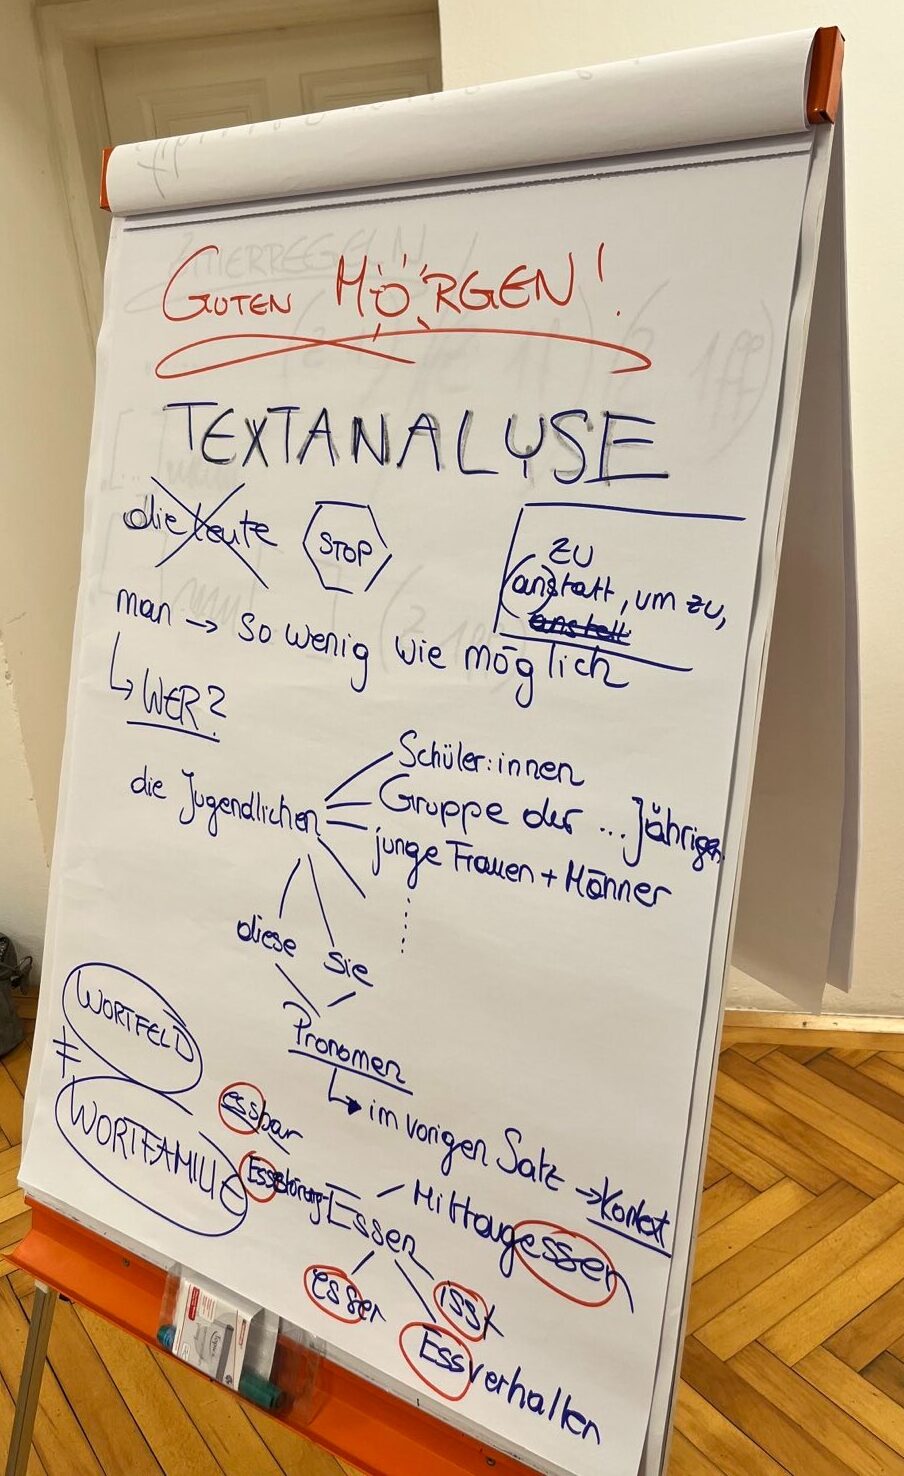 GUTEN MORGEN!
TEXTANALYSE
die Leute STOP
ZU
(an)statt, um zu,
anstell
man → so wenig wie möglich
↳ WER?
die Jugendlichen
Schüler:innen
Gruppe der ... jährigen
junge Frauen + Männer
diese sie
Pronomen
↳ im vorigen Satz → Kontext
WORTFELD
≠
WORTFAMILIE
essbar
Essstörung
Essen
Mittagessen
essen
isst
Essverhalten
ZITIERREGELN